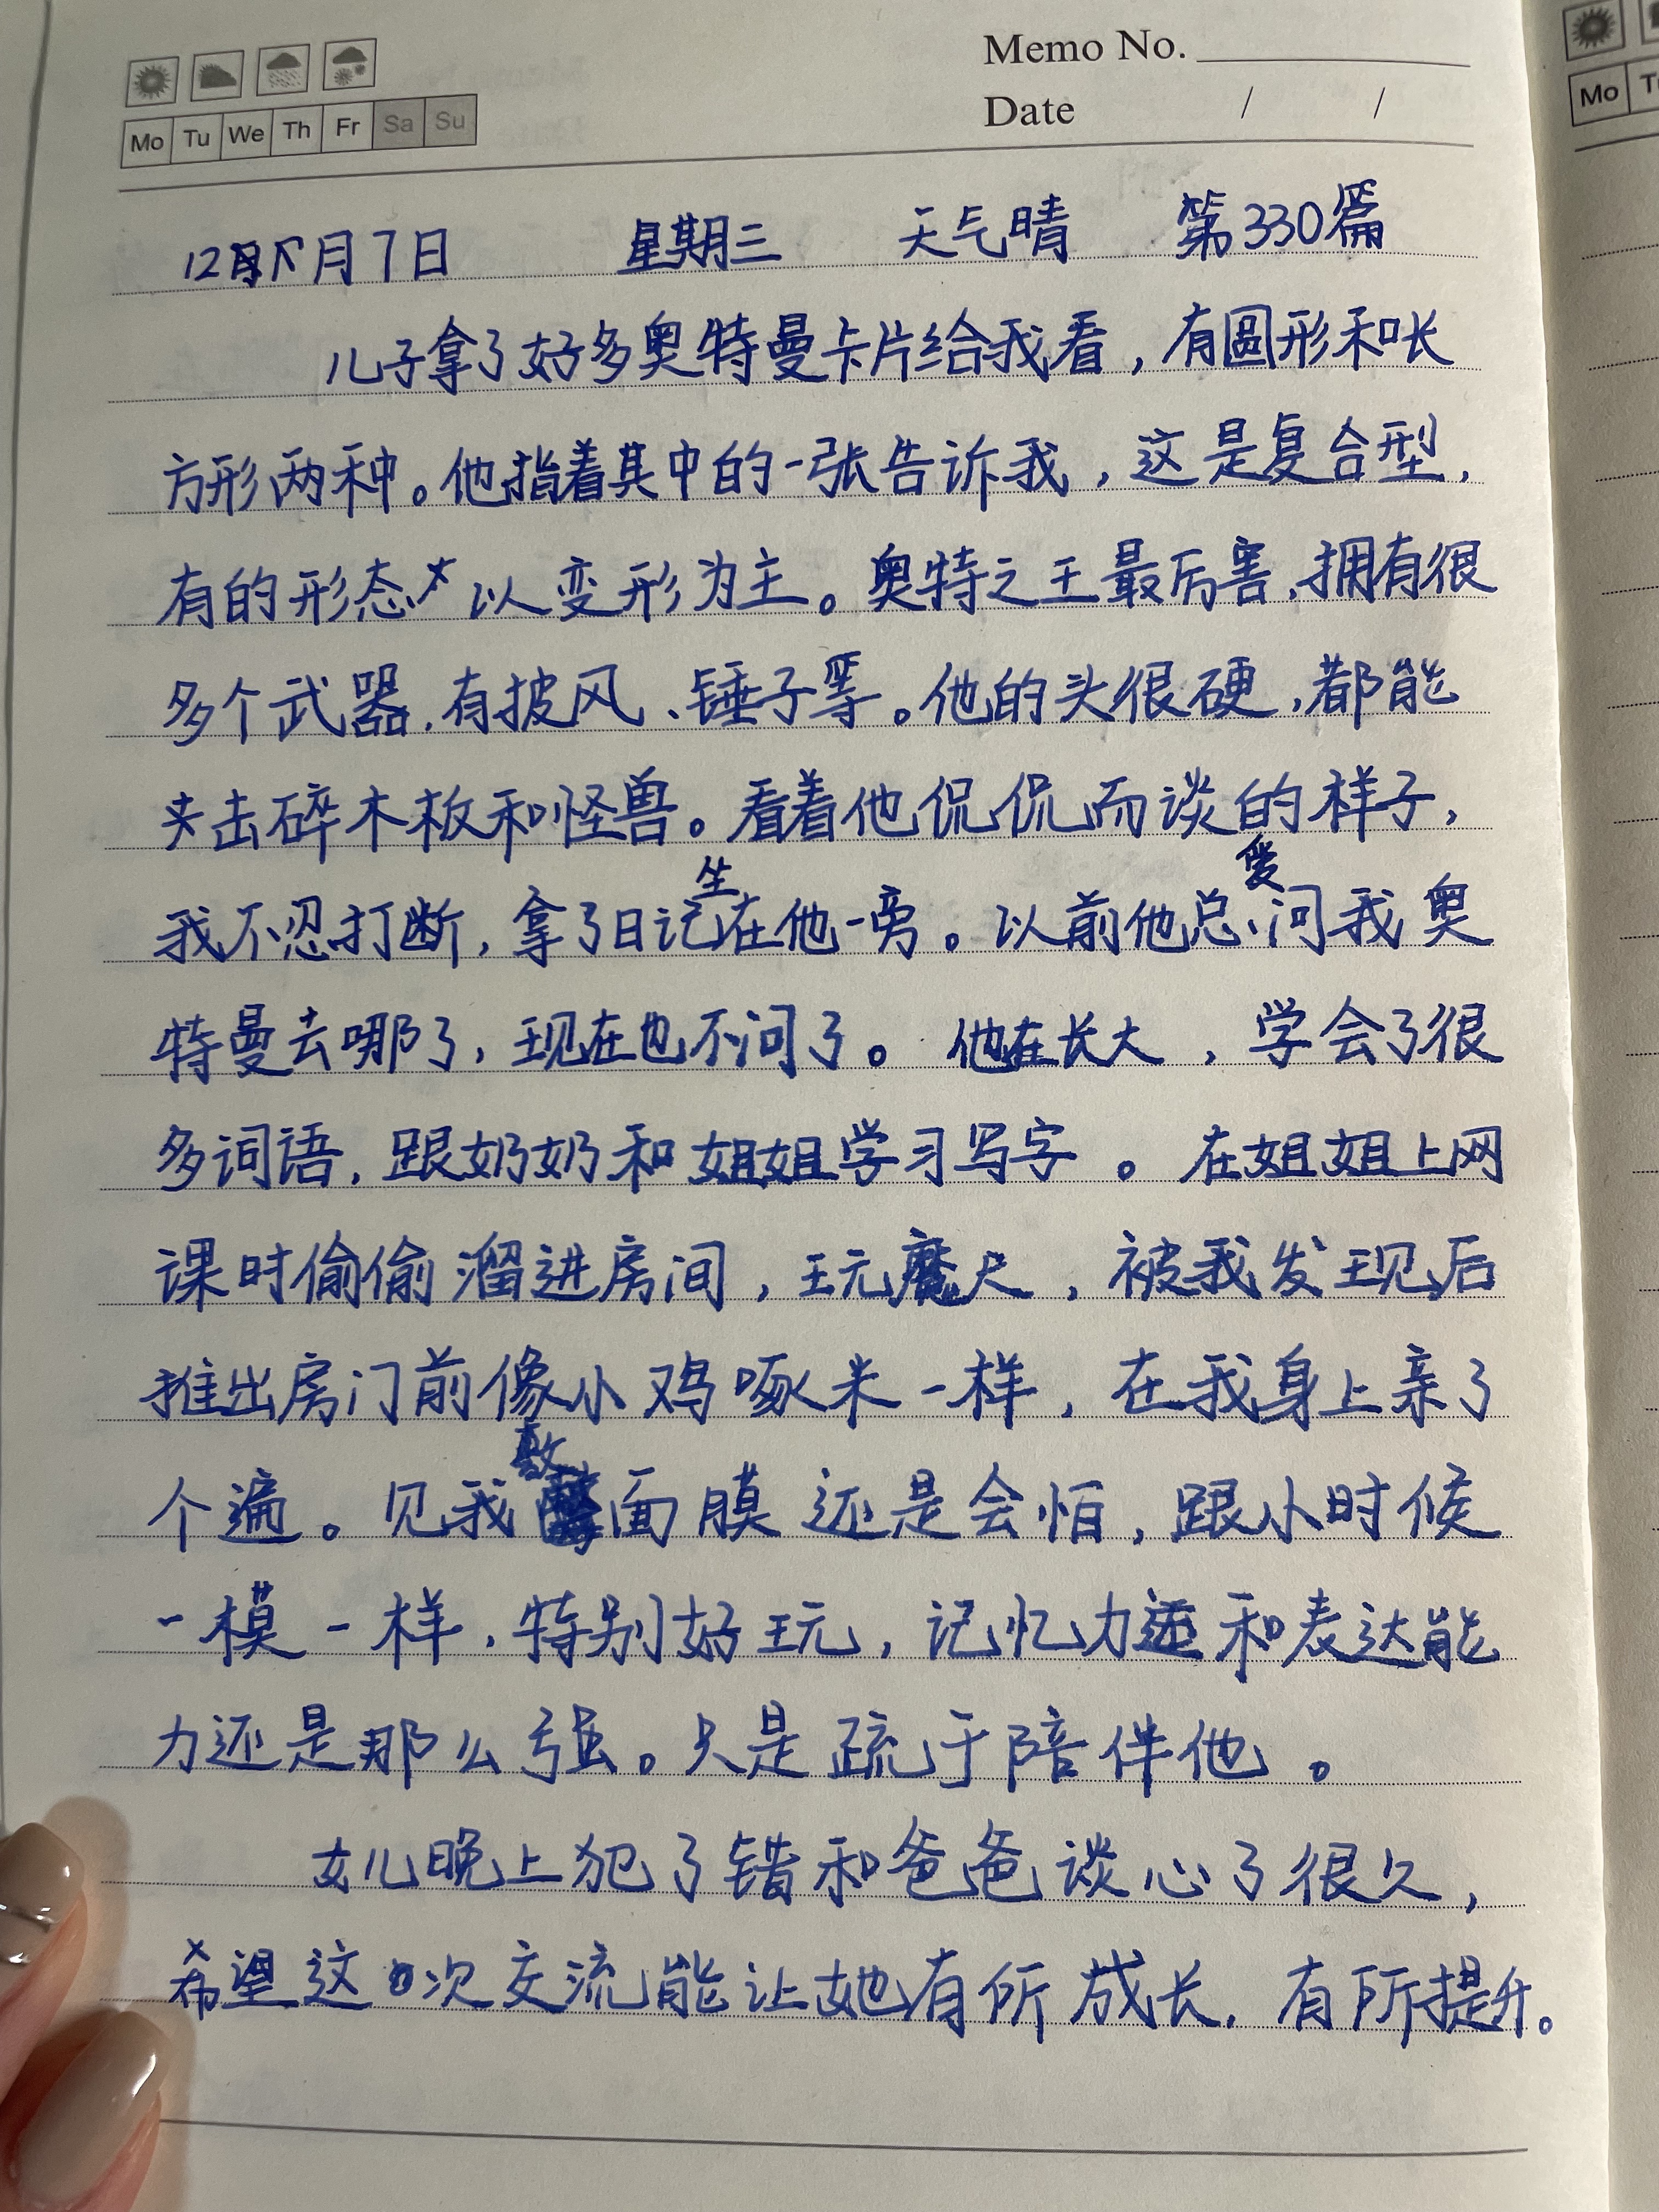 Memo No.
Mo Tu We Th Fr Sa Su
Date / /
Mo
12月7日 星期三 天气晴 第330篇
儿子拿了好多奥特曼卡片给我看,有圆形和长
方形两种。他指着其中的一张告诉我,这是复合型,
有的形态以变形为主。奥特之王最厉害,拥有很
多个武器,有披风、锤子等。他的头很硬,都能
夹击碎木板和怪兽。看着他侃侃而谈的样子,
我不忍打断,拿了日记坐在他一旁。以前他总爱问我奥
特曼去哪了,现在也不问了。他在长大,学会了很
多词语,跟奶奶和姐姐学习写字。在姐姐上网
课时偷偷溜进房间,玩魔尺,被我发现后
推出房门前像小鸡啄米一样,在我身上亲了
个遍。见我敷面膜还是会怕,跟小时候
一模一样,特别好玩,记忆力和表达能
力还是那么强。只是疏于陪伴他。
女儿晚上犯了错和爸爸谈心了很久,
希望这次交流能让她有所成长,有所提升。